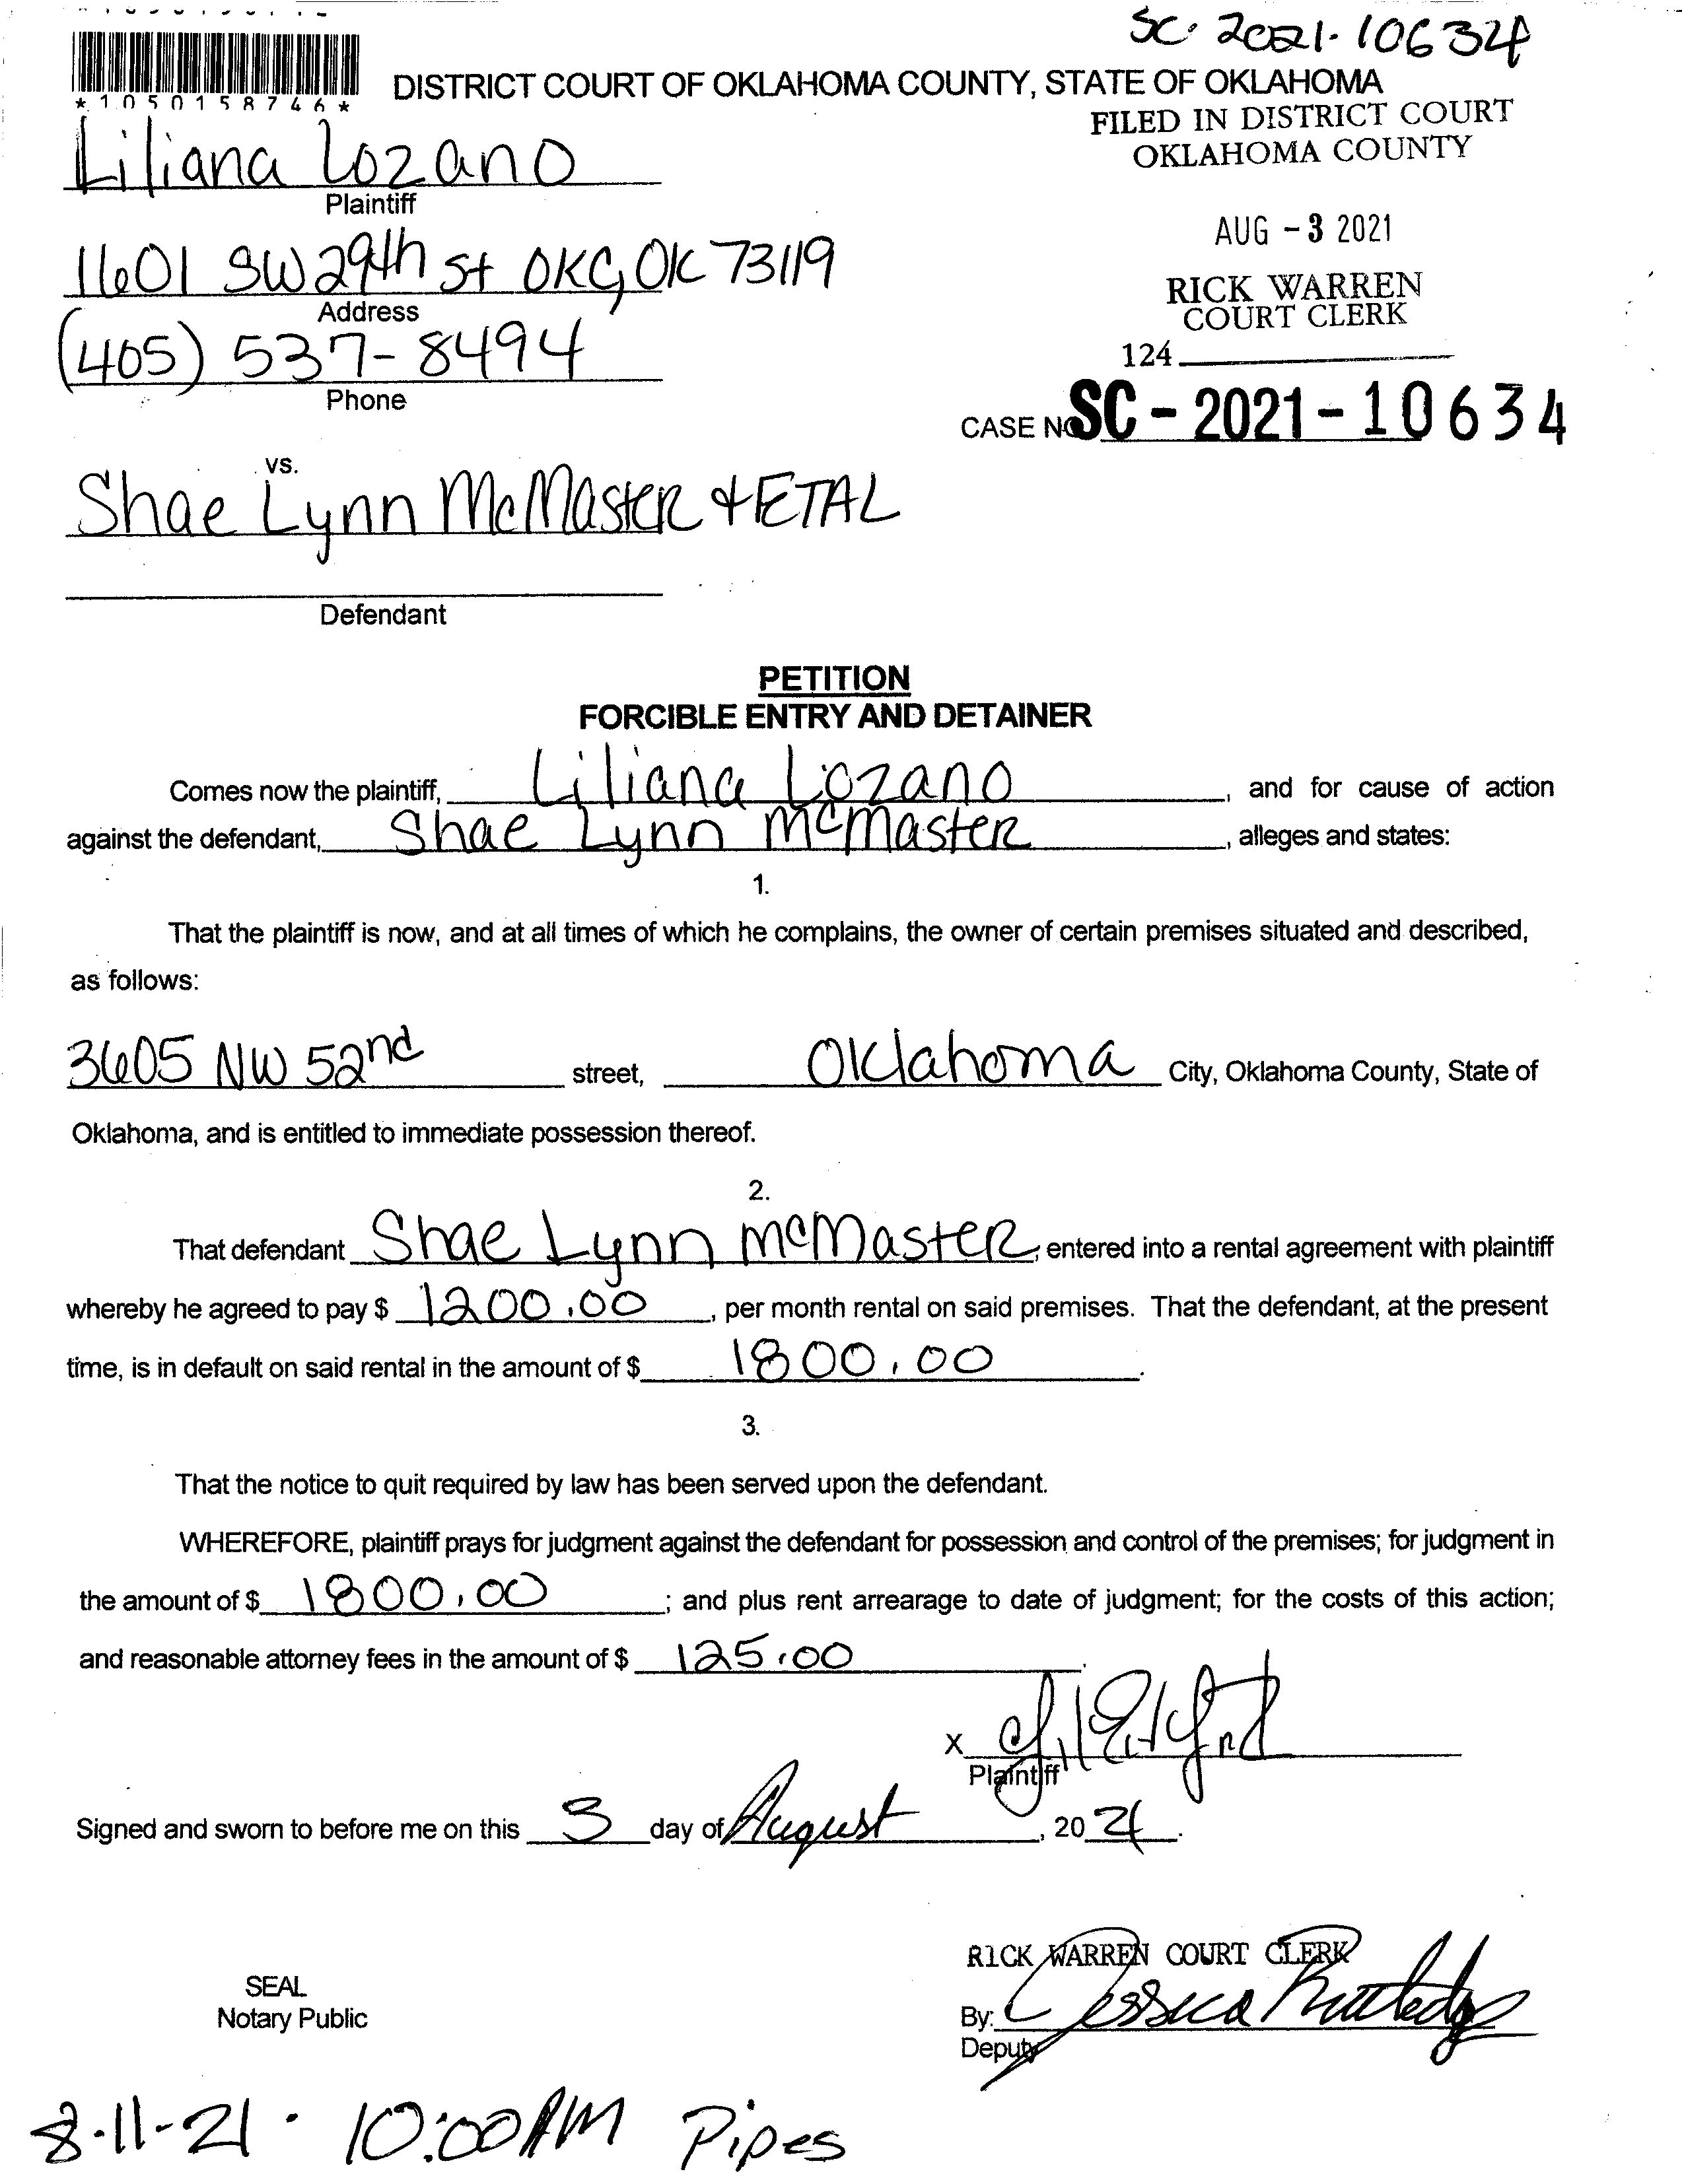 SC-2021-10634
*1050158746*
DISTRICT COURT OF OKLAHOMA COUNTY, STATE OF OKLAHOMA
FILED IN DISTRICT COURT
OKLAHOMA COUNTY
Liliana Lozano
Plaintiff
AUG - 3 2021
1601 SW 29th St OKC, OK 73119
Address
RICK WARREN
COURT CLERK
(405) 537-8494
Phone
124
CASE NO SC - 2021 - 10634
vs.
Shae Lynn McMaster & ETAL
Defendant
PETITION
FORCIBLE ENTRY AND DETAINER
Comes now the plaintiff, Liliana Lozano, and for cause of action
against the defendant, Shae Lynn McMaster, alleges and states:
1.
That the plaintiff is now, and at all times of which he complains, the owner of certain premises situated and described,
as follows:
3605 NW 52nd street, Oklahoma City, Oklahoma County, State of
Oklahoma, and is entitled to immediate possession thereof.
2.
That defendant Shae Lynn McMaster, entered into a rental agreement with plaintiff
whereby he agreed to pay $ 1200.00, per month rental on said premises. That the defendant, at the present
time, is in default on said rental in the amount of $ 1800.00.
3.
That the notice to quit required by law has been served upon the defendant.
WHEREFORE, plaintiff prays for judgment against the defendant for possession and control of the premises; for judgment in
the amount of $ 1800.00; and plus rent arrearage to date of judgment; for the costs of this action;
and reasonable attorney fees in the amount of $ 125.00.
X
Plaintiff
Signed and sworn to before me on this 3 day of August, 2021.
RICK WARREN COURT CLERK
SEAL
Notary Public
By: Jessica Rutledge
Deputy
8-11-21 · 10:00AM Pipes